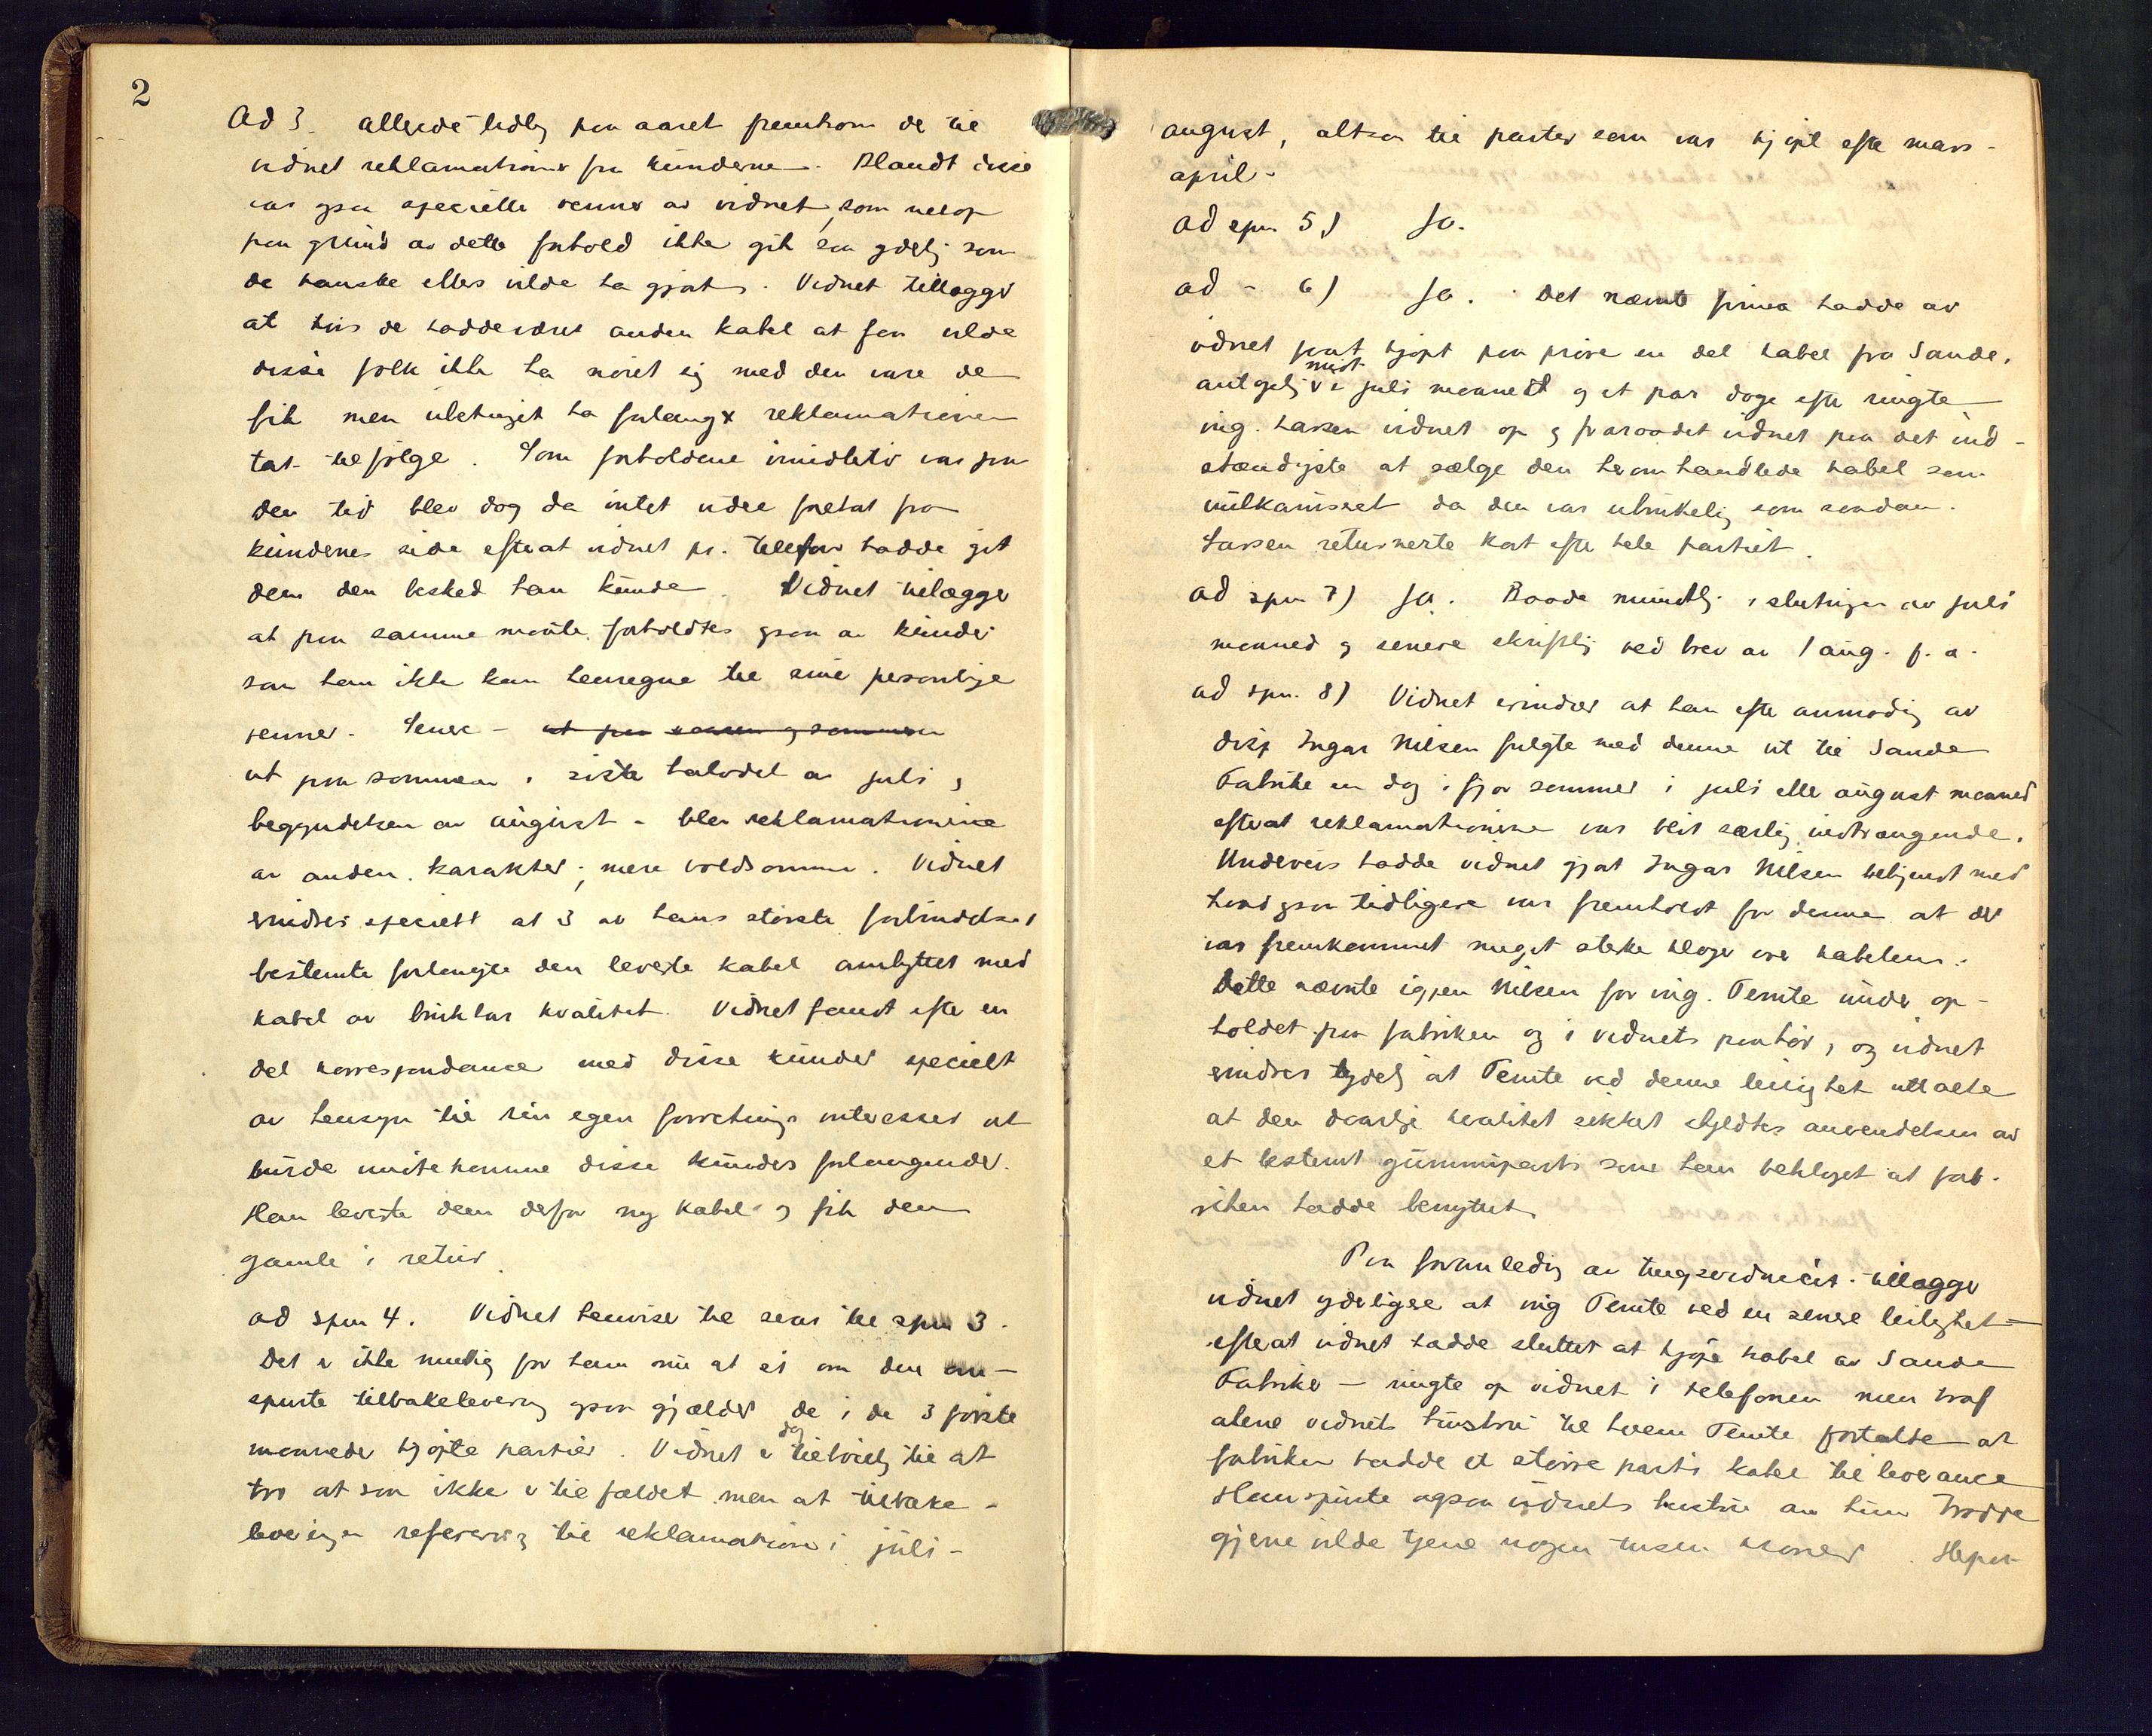 2
Ad 3. allerede tidlig paa aaret fremkom der til
vidnet reklamationer fra kunderne. Blandt disse
var ogsaa specielle venner av vidnet, som netop
paa grund av dette forhold ikke gik saa ydelig som
de kanske ellers vilde ha gjort. Vidnet tillægger
at hvis de hadde været anden kabel at faa vilde
disse folk ikke ha nöiet sig med den vare de
fik men ubetinget ha forlangt reklamationen
tat tilfölge. Som forholdene imidlertid var paa
den tid blev dog da intet videre foretat fra
kundenes side efterat vidnet pr. telefon hadde git
dem den besked han kunde. Vidnet tilægger
at paa samme maate forholdtes ogsaa av kunder
som han ikke kan henregne til sine personlige
venner. Senere - ut paa vaaren og sommeren
ut paa sommeren i siste halvdel av juli og
begyndelsen av august - blev reklamationerne
av anden karakter; mere voldsomme. Vidnet
erindrer specielt at 3 av hans störste forbindelser
bestemte forlangte den leverte kabel ombyttet med
kabel av brukbar kvalitet. Vidnet fandt efter en
del korrespondance med disse kunder specielt
av hensyn til sin egen forretnings interesser at
burde imötekomme disse kunders forlangender.
Han leverte dem derfor ny kabel og fik den
gamle i retur.
ad spm 4. Vidnet henviser til svar til spm 3.
Det er ikke mulig for ham nu at si om den om-
spurte tilbakelevering ogsaa gjælder de i de 3 förste
maaneder kjöpte partier. Vidnet er dog tilböielig til at
tro at saa ikke er tilfældet men at tilbake-
leveringen refererer sig til reklamationer i juli -
august, altsaa til partier som var kjöpt efter mars-
april.
ad spm 5) Ja.
ad - 6) Ja. Det nævnte firma hadde av
vidnet forut kjöpt paa pröve en del kabel fra Sande,
antagelig midt i juli maaned og et par dage efter ringte
ing. Lassen vidnet op og fraraadet vidnet paa det ind-
stændigste at sælge den heromhandlede kabel som
vulkaniseret da den var ubrukelig som saadan.
Lassen returnerte kort efter hele partiet.
ad spm 7) Ja. Baade mundtlig i slutningen av juli
maaned og senere skriftlig ved brev av 1 aug. f. a.
ad spm. 8) Vidnet erindrer at han efter anmodning av
disp Ingar Nilsen fulgte med denne ut til Sande
Fabriker en dag i fjor sommer i juli eller august maaned
efterat reklamationerne var blit særlig indtrængende.
Underveis hadde vidnet gjort Ingar Nilsen bekjendt med
hvad ogsaa tidligere var fremholdt for denne at der
var fremkommet meget sterke klager over kabelen.
Dette nævnte igjen Nilsen for ing. Temte under op-
holdet paa fabriken og i vidnets paahör, og vidnet
erindrer tydelig at Temte ved denne leilighet uttalte
at den daarlige kvalitet sikkert skyldtes anvendelsen av
et bestemt gummiparti som han beklaget at fab-
riken hadde benyttet.
Paa foranledning av tillægger
vidnet yderligere at ing Temte ved en senere leilighet -
efterat vidnet hadde sluttet at kjöpe kabel av Sande
Fabriker - ringte op vidnet i telefonen men traf
alene vidnets hustru til hvem Temte fortalte at
fabriken hadde et större parti kabel til leverance
Han spurte ogsaa vidnets hustru om hun trodde
gjerne vilde tjene nogen tusen kroner.